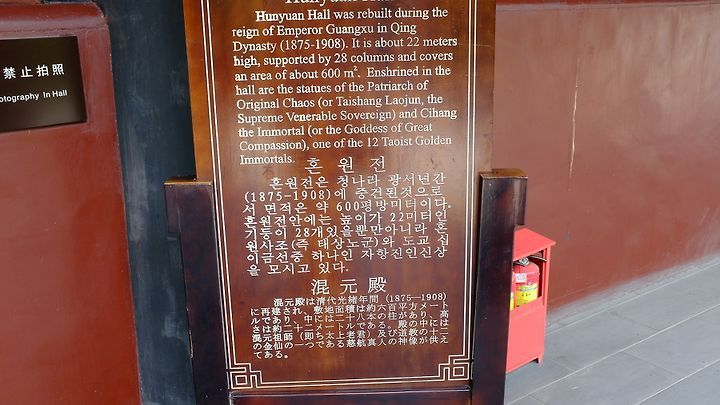 禁止拍照
otography In Hall
Hunyuan Hall
Hunyuan Hall was rebuilt during the
reign of Emperor Guangxu in Qing
Dynasty (1875-1908). It is about 22 meters
high, supported by 28 columns and covers
an area of about 600 m². Enshrined in the
hall are the statues of the Patriarch of
Original Chaos (or Taishang Laojun, the
Supreme Venerable Sovereign) and Cihang
the Immortal (or the Goddess of Great
Compassion), one of the 12 Taoist Golden
Immortals.
혼원전
혼원전은 청나라 광서년간
(1875-1908)에 중건된것으로
서 면적은 약 600평방미터이다.
혼원전안에는 높이가 22미터인
기둥이 28개있을뿐만아니라 혼
원사조(즉 태상노군)와 도교 십
이금선중 하나인 자항진인신상
을 모시고 있다.
混元殿
混元殿は清代光緒年間 (1875—1908)
に再建され、敷地面積は約六百平方メート
ルであり、中には二十八本の柱があり、高
さは約二十二メートルである。殿の中には
混元祖師（即ち太上老君）及び道教の十二
の金仙の一つである慈航真人の神像が供え
てある。